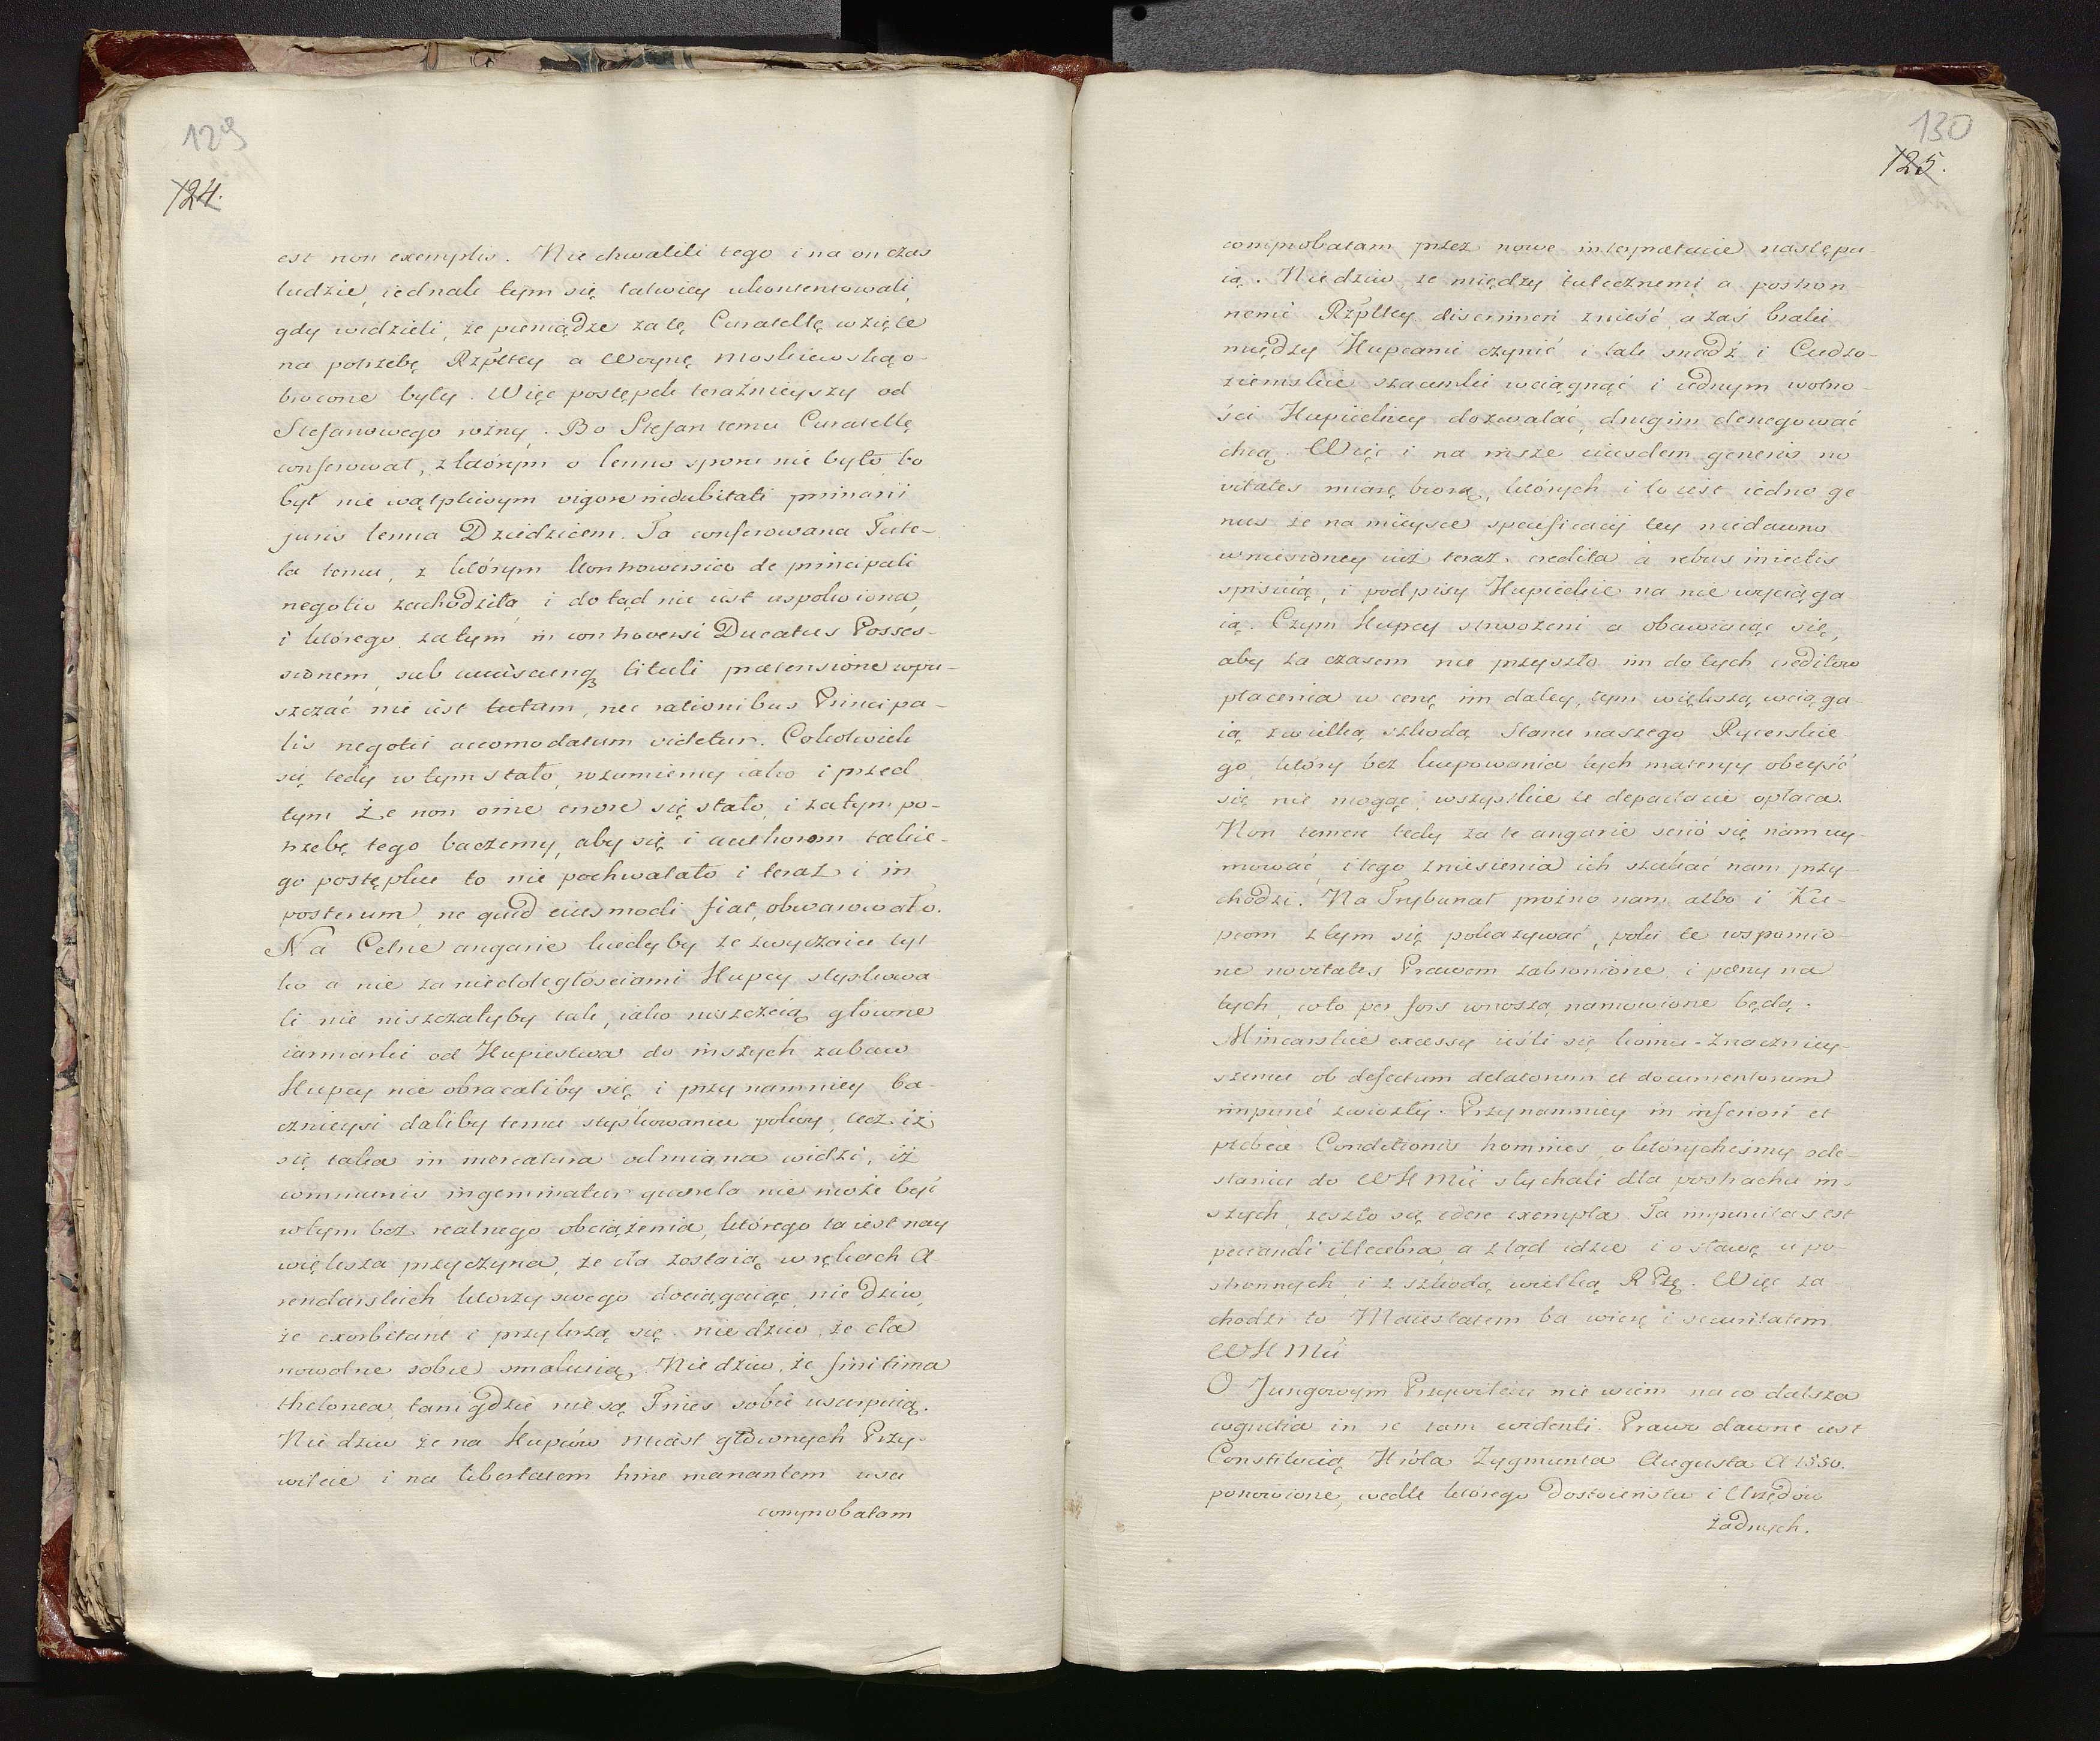 129
124.
est non exemplis. Nie chwalili tego i na on czas
ludzie, iednak tym się łatwiey ukontentowali,
gdy widzieli, że pieniądze za tę Curatellę wzięte
na potrzebę Rzpltey a Woynę Moskiewską o-
brocone były. Więc postępek teraźnieyszy od
Stefanowego rożny. Bo Stefan temu Curatellę
conferował, z którym o lenno sporu nie było bo
był nie wątpliwym vigore indubitati primarii
juris lenna Dziedzicem. Ta conferowana Tute-
la temu, z którym kontrowersia de principali
negotio zachodziła, i do tąd nie iest uspokoiona,
i którego zatym in controversi Ducatus Posses-
sionem, sub cuiuscunq tituli praetensione wpu-
szczać nie iest tutum, nec rationibus Principa-
lis negotii accomodatum videtur. Cokolwiek
się tedy w tym stało, rozumiemy iako i przed
tym że non sine errore się stało, i zatym po-
trzebę tego baczemy, aby się i authorom takie-
go postępku to nie pochwalało i teraz i in
posterum, ne quid eiusmodi fiat, obwarowało.
Na Celne angarie kiedyby ze zwyczaiu tyl
ko a nie za niedoległosciami Kupcy styskowa
li nie niszczałyby tak, iako niszczeią głowne
iarmarki od Kupiestwa do inszych zabaw
Kupcy nie obracaliby się i przynamniey ba-
cznieysi daliby temu styskowaniu pokoy, lecz iż
się taka in mercatura odmiana widzi, iż
communis ingeminatur querela nie może być
w tym bez realnego obciążenia, którego ta iest nay
większa przyczyna, że cła zostaią w rękach A-
rendarskich ktorzy swego dociągaiąc, nie dziw,
że exorbitant i przykrzą się nie dziw, że cła
nowolne sobie smakuią. Nie dziw, że finitima
thelonea, tam gdzie nie są Fines sobie usurpuią.
Nie dziw że na Kupców miast głownych Przy-
wileie i na libertatem hinc manantem usu
comprobatam
130
125.
comprobatam przez nowe interpretacie następu-
ią. Nie dziw, że między tutecznemi a postron-
nemi Rzpltey discrimen znieść, a zaś braki
między Kupcami czynić i tak snadź i Cudzo-
ziemskie szacunki wciągnąć i iednym wolno-
ści Kupieckiey dozwalać, drugim denegować
chcą. Więc i na insze eiusdem generis no
vitates miarę biorą, których i to iest iedno ge-
nus że na mieysce specificacij tey niedawno
wniesioney iuż teraz credita a rebus iniectis
spisuią, i podpisy Kupieckie na nie wyciąga
ią. Czym Kupcy strwożeni a obawiaiąc się,
aby za czasem nie przyszło im do tych creditow
płacenia w cenę im daley, tym większą wciąga-
ią z wielką szkodą Stanu naszego Rycerskie-
go, który bez kupowania tych materyy obeyść
się nie mogąc, wszystkie te depactacie opłaca.
Non temere tedy za te angarie serio się nam uy-
mować, i tego zniesienia ich szukać nam przy-
chodzi. Na Trybunał prożno nam albo i Ku-
pcom z tym się pokazywać, poki te wspomio-
ne novitates Prawem zabronione, i pæny na
tych, co to per fors wnoszą namowione będą.
Mincarskie excessy ieśli się komu znaczniey-
szemu ob defectum delatorum et documentorum
impune zwiozły. Przynamniey in inferiori et
plebeia Conditionis homines, o którycheśmy ode-
słaniu do WKMci słychali dla postrachu in-
szych, zeszło się edere exempla. Ta impunitas est
peccandi illecebra, a ztąd idzie i o sławę u po-
stronnych, i z szkodą wielką RPtę. Więc za-
chodzi to Maiestatem ba wierę i securitatem
WKMci
O Jungowym Przywileiu nie wiem na co dalsza
cognitia in re tam evidenti. Prawo dawne iest
Constitucią Króla Zygmunta Augusta A 1550.
ponowione, wedle którego Dostoieństw i Urzędow
żadnych.